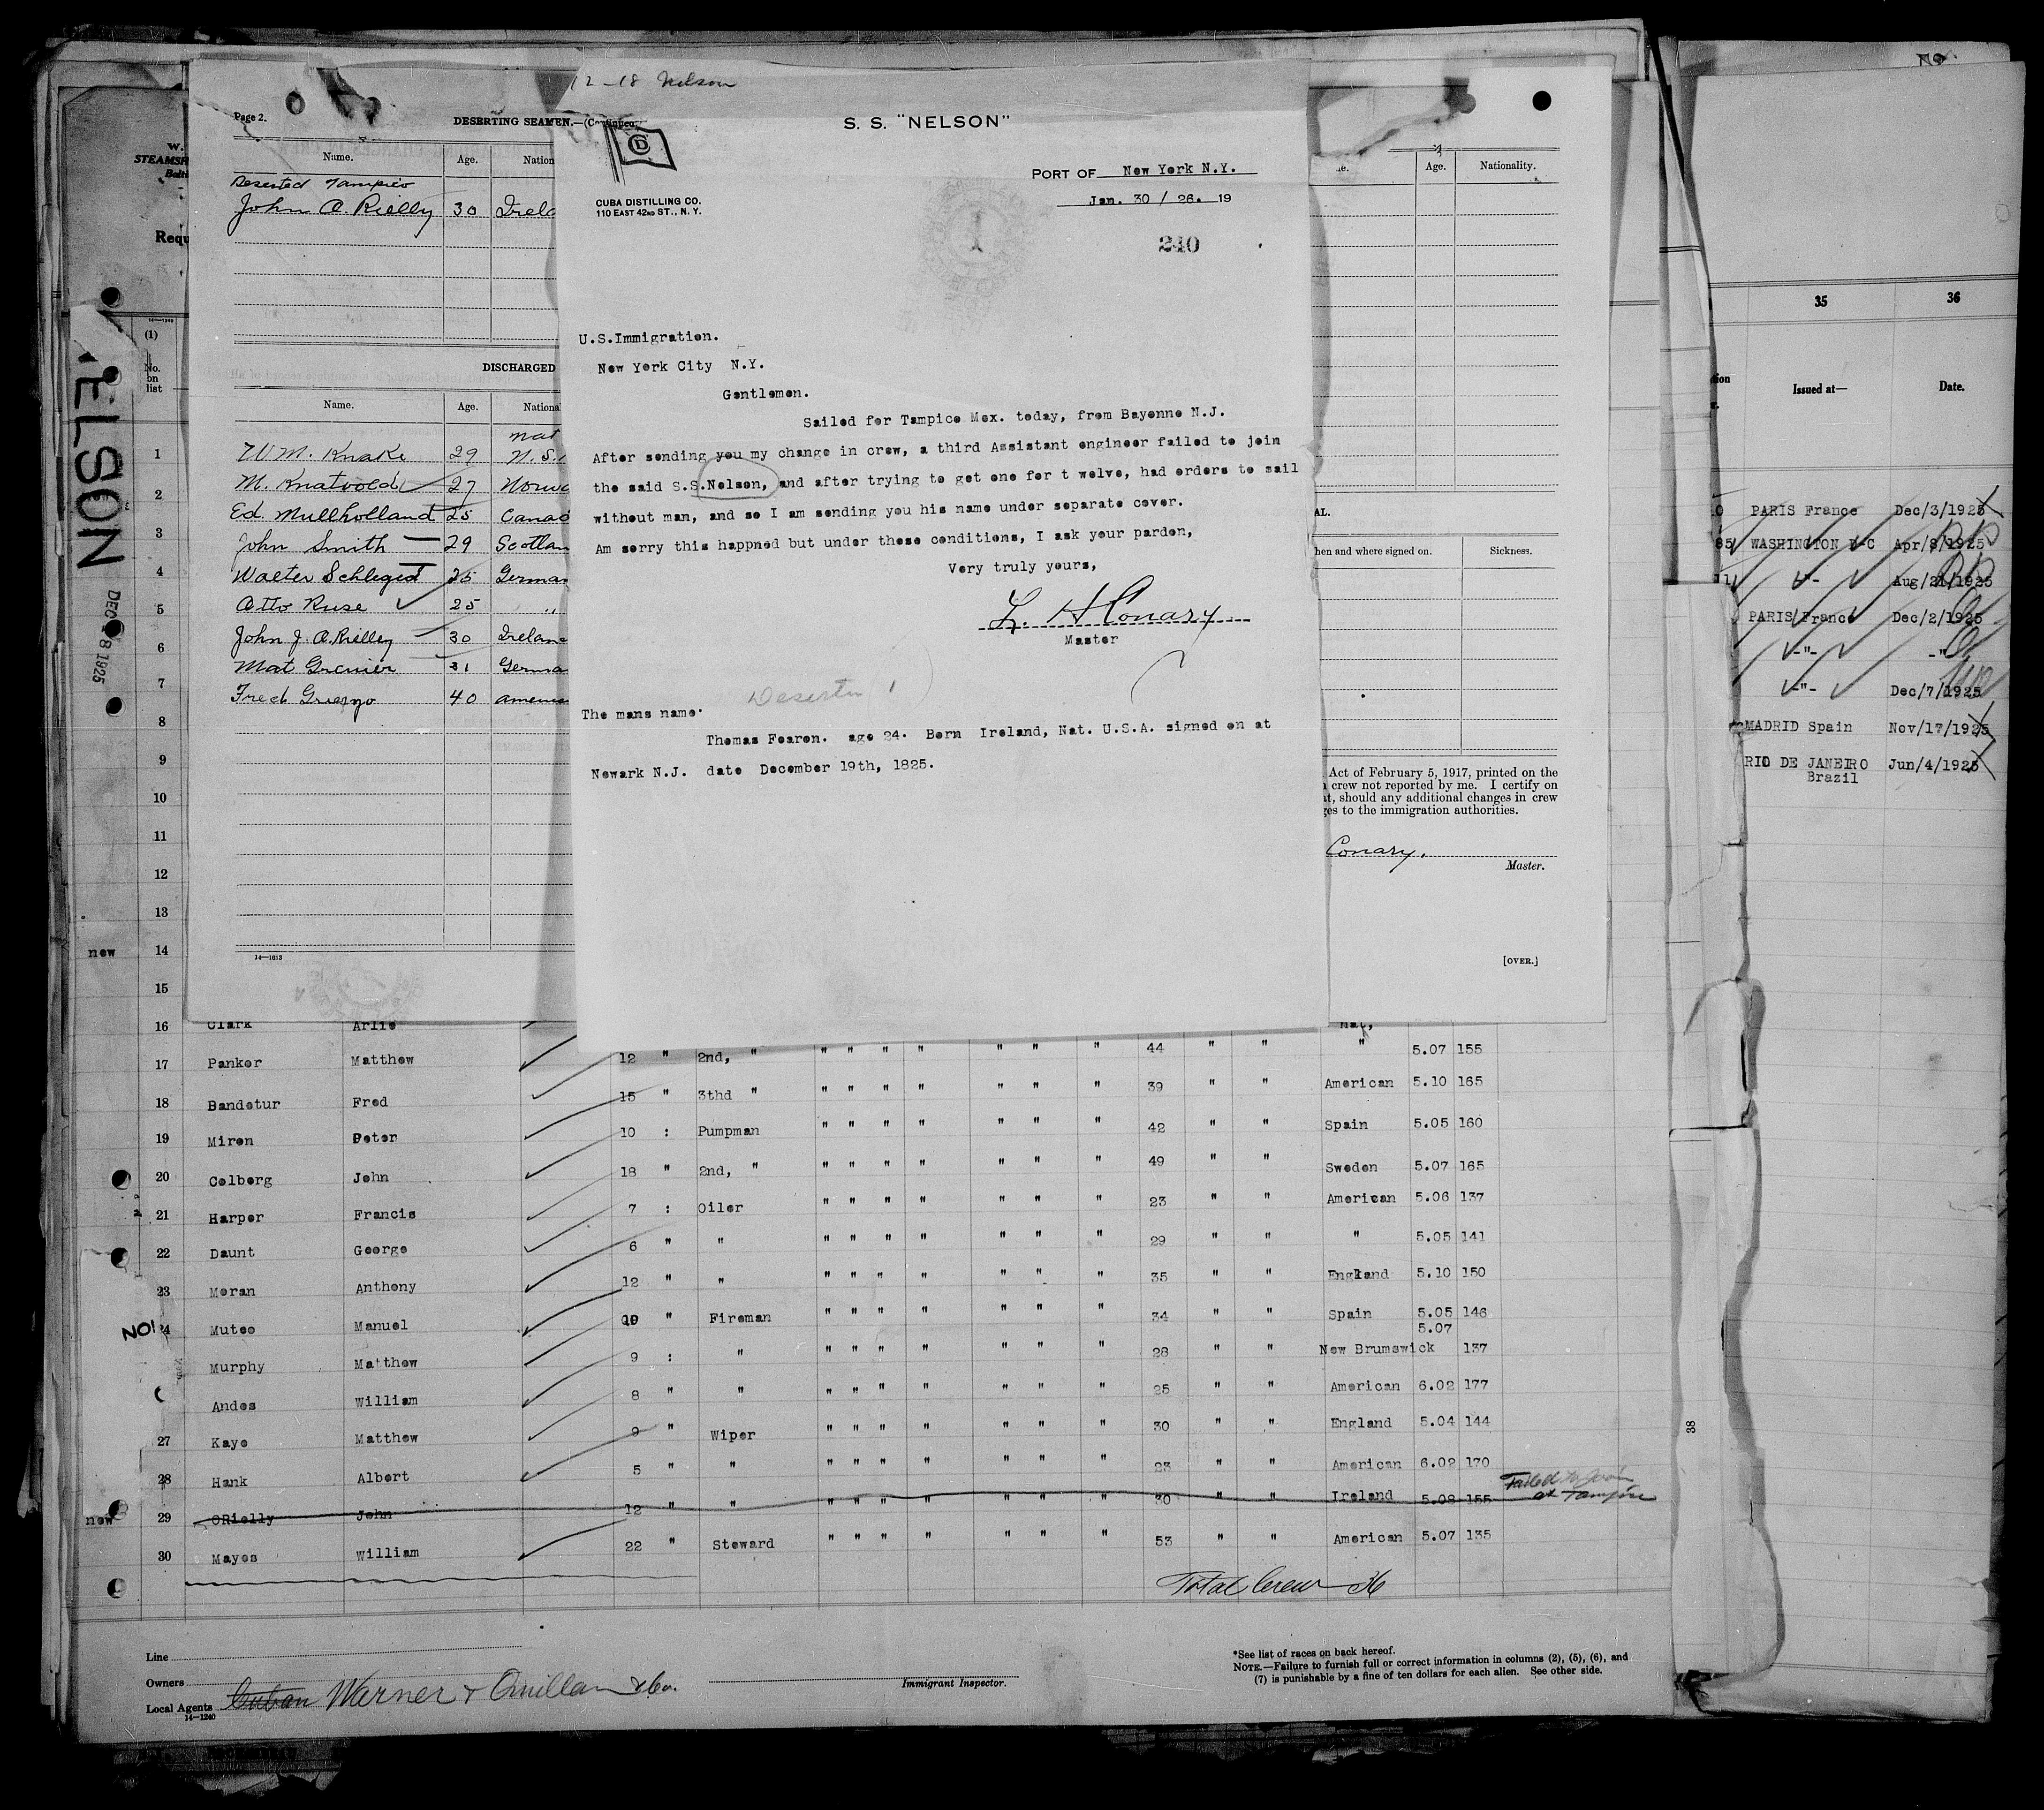 12-18 Nelson
S. S. "NELSON"
CD
CUBA DISTILLING CO.
110 EAST 42ND ST., N. Y.
PORT OF New York N.Y.
Jan. 30 / 26. 19
240
U.S.Immigration.
New York City N.Y.
Gentlemen.
Sailed for Tampico Mex. today, from Bayonne N.J.
After sending you my change in crew, a third Assistant engineer failed to join
the said S.S.Nelson, and after trying to get one for t welve, had orders to sail
without man, and so I am sending you his name under separate cover.
Am sorry this happned but under these conditions, I ask your pardon,
Very truly yours,
L. H Conary
Master
Deserter (1)
The mans name.
Thomas Fearon. age 24. Born Ireland, Nat. U.S.A. signed on at
Newark N.J. date December 19th, 1825.
Page 2.
DESERTING SEAMEN.—(Continued
Name. Age. Nation
Deserted Tampico
John O. Rielly 30 Irela
DISCHARGED
Name. Age. Nationa
nat
W M. Knake 29 U.S.
M. Knatvold 27 Norw
Ed. Mullholland 25 Canad
John Smith 29 Scotlan
Walter Schleged 25 German
Otto Ruse 25 "
John J. O.Rielley 30 Irelan
Mat Grenier 31 Germa
Fred Gresyo 40 americ
14—1613
Age. Nationality.
AL.
hen and where signed on. Sickness.
Act of February 5, 1917, printed on the
crew not reported by me. I certify on
t, should any additional changes in crew
ges to the immigration authorities.
Conary.
Master.
[OVER.]
W.
STEAMSH
Balti
Requ
14—1240
(1)
No.
on
list
ELSON
DEC 18 1925
1
2
3
4
5
6
7
8
9
10
11
12
13
new 14
15
16 Clark Arlie Nat,
17 Panker Matthew 12 " 2nd, " " " " " " " " 44 " " " 5.07 155
18 Bandetur Fred 15 " 3thd " " " " " " " " 39 " " American 5.10 165
19 Miren Peter 10 : Pumpman " " " " " " " 42 " " Spain 5.05 160
20 Colberg John 18 " 2nd, " " " " " " " " 49 " " Sweden 5.07 165
21 Harper Francis 7 : Oiler " " " " " " " 23 " " American 5.06 137
22 Daunt George 6 " " " " " " " " " 29 " " " 5.05 141
23 Moran Anthony 12 " " " " " " " " " 35 " " England 5.10 150
24 Muteo Manuel 10 " Fireman " " " " " " " 34 " " Spain 5.05 146
5.07
Murphy Matthew 9 : " " " " " " " " 28 " " New Brumswick 137
Andes William 8 " " " " " " " " " 25 " " American 6.02 177
27 Kaye Matthew 9 " Wiper " " " " " " " 30 " " England 5.04 144
28 Hank Albert 5 " " " " " " " " " 23 " " American 6.02 170
new 29 ORielly John 12 " " " " " " " " " 30 " " Ireland 5.08 155 Failed to Join
at Tampico
30 Mayes William 22 " Steward " " " " " " " 53 " " American 5.07 135
Total Crew 36
NO!
Line
Owners
Local Agents Cuban Warner & Quillan & Co.
14—1240
Immigrant Inspector.
*See list of races on back hereof.
NOTE.—Failure to furnish full or correct information in columns (2), (5), (6), and
(7) is punishable by a fine of ten dollars for each alien. See other side.
35 36
Issued at— Date.
0 PARIS France Dec/3/1925
85 WASHINGTON D-C Apr/8/1925
11 -"- Aug/21/1925
PARIS France Dec/2/1925
-"- -"-
-"- Dec/7/1925
MADRID Spain Nov/17/1925
RIO DE JANEIRO Jun/4/1925
Brazil
38